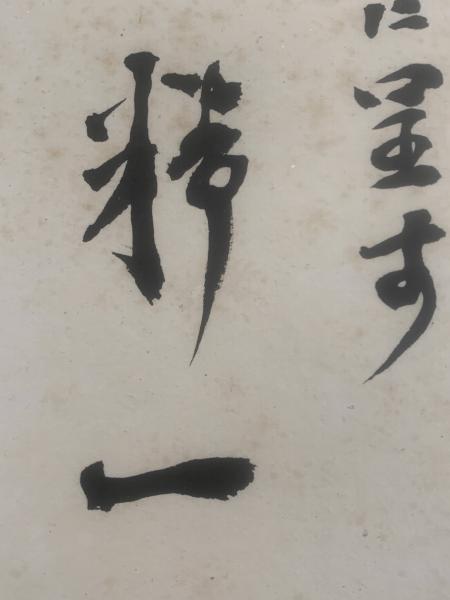 に呈す
精一